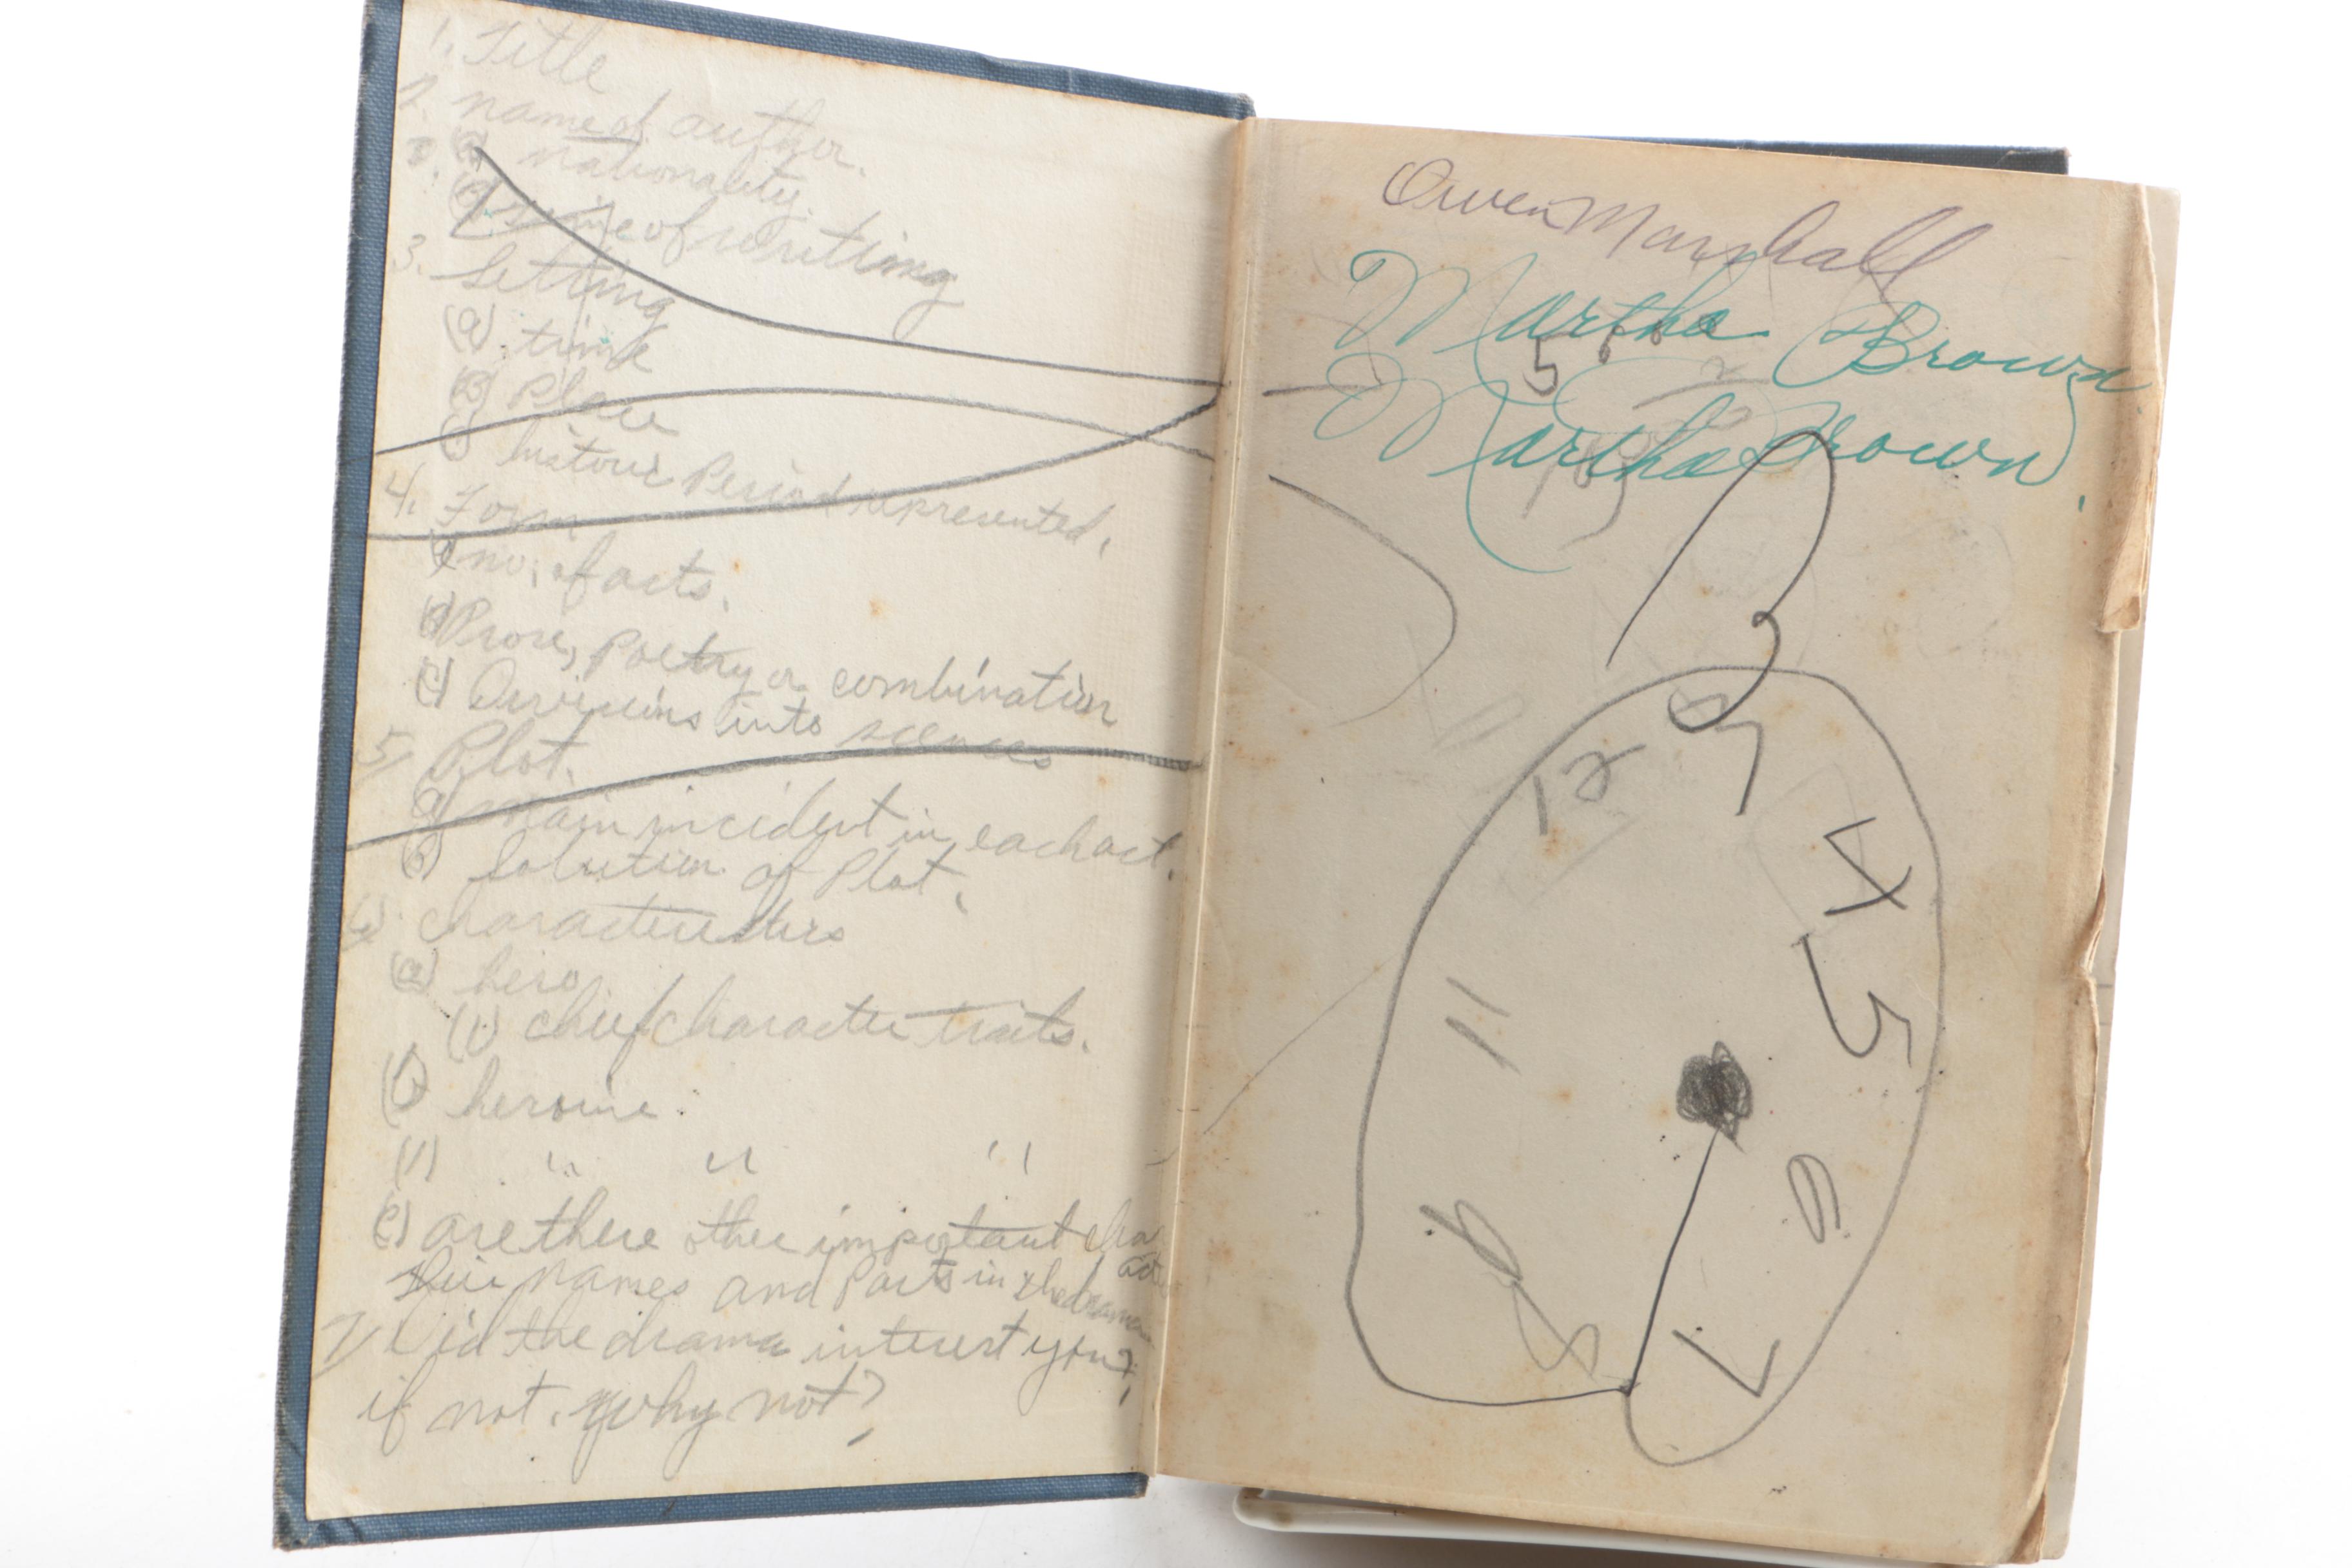 1. Title
2. name of author.
(a) nationality
(B) time of writing
3. Setting
(a) time
(B) Place
(c) historic Period represented.
4. Form
(a) no. of acts.
(B) Prose, Poetry or combination
(c) Divisions into scenes
5. Plot.
a) main incident in each act.
(b) Solution of Plot.
6) characteristics
(a) hero
(1) chief character traits.
(b) heroine
(1) " " "
(c) are there other important
names and Parts in the drama
7) Did the drama interest you?
if not, why not?
Owen Marshall
Martha Brown
5
Martha Brown.
12
4
11
5
6
9
8
7